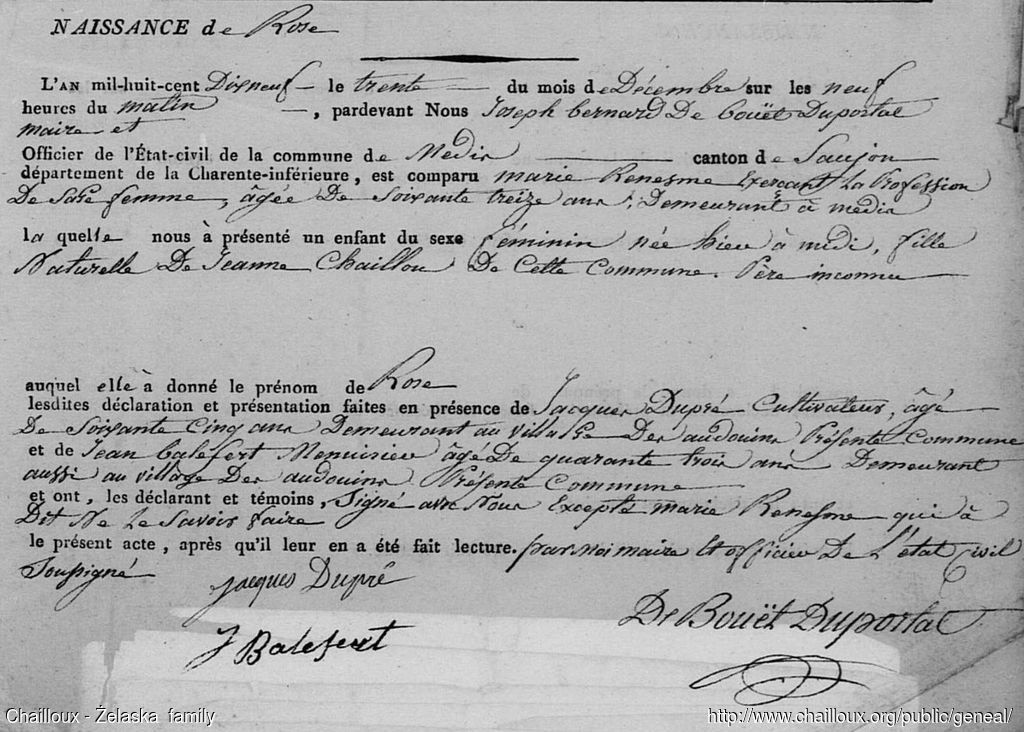 NAISSANCE de Rose
L'AN mil-huit-cent Dixneuf le trente du mois de Décembre sur les neuf
heures du matin, pardevant Nous Joseph bernard De bouët Duportal
maire et
Officier de l'État-civil de la commune de Médis canton de Saujon
département de la Charente-inférieure, est comparu marie Renesme Exerçant La Profession
De Sage femme, âgée De Soixante treize ans, Demeurant à médis
la quelle nous à présenté un enfant du sexe féminin née hier à midi, fille
Naturelle De Jeanne Chaillou De Cette Commune. Père inconnu
auquel elle à donné le prénom de Rose
lesdites déclaration et présentation faites en présence de Jacques Dupré Cultivateur, âgé
De Soixante Cinq ans Demeurant au village Des audouins Présente Commune
et de Jean balefert Menuisier âgé De quarante trois ans Demeurant
aussi au village Des audouins Présente Commune
et ont, les déclarant et témoins, Signé avec Nous Excepté marie Renesme qui à
Dit Ne Le Savoir faire
le présent acte, après qu'il leur en a été fait lecture. par moi maire Et officier De L'état Civil
Soussigné
Jacques Dupré
De Bouët Duportal
J Balefert
Chailloux - Żelaska family
http://www.chailloux.org/public/geneal/